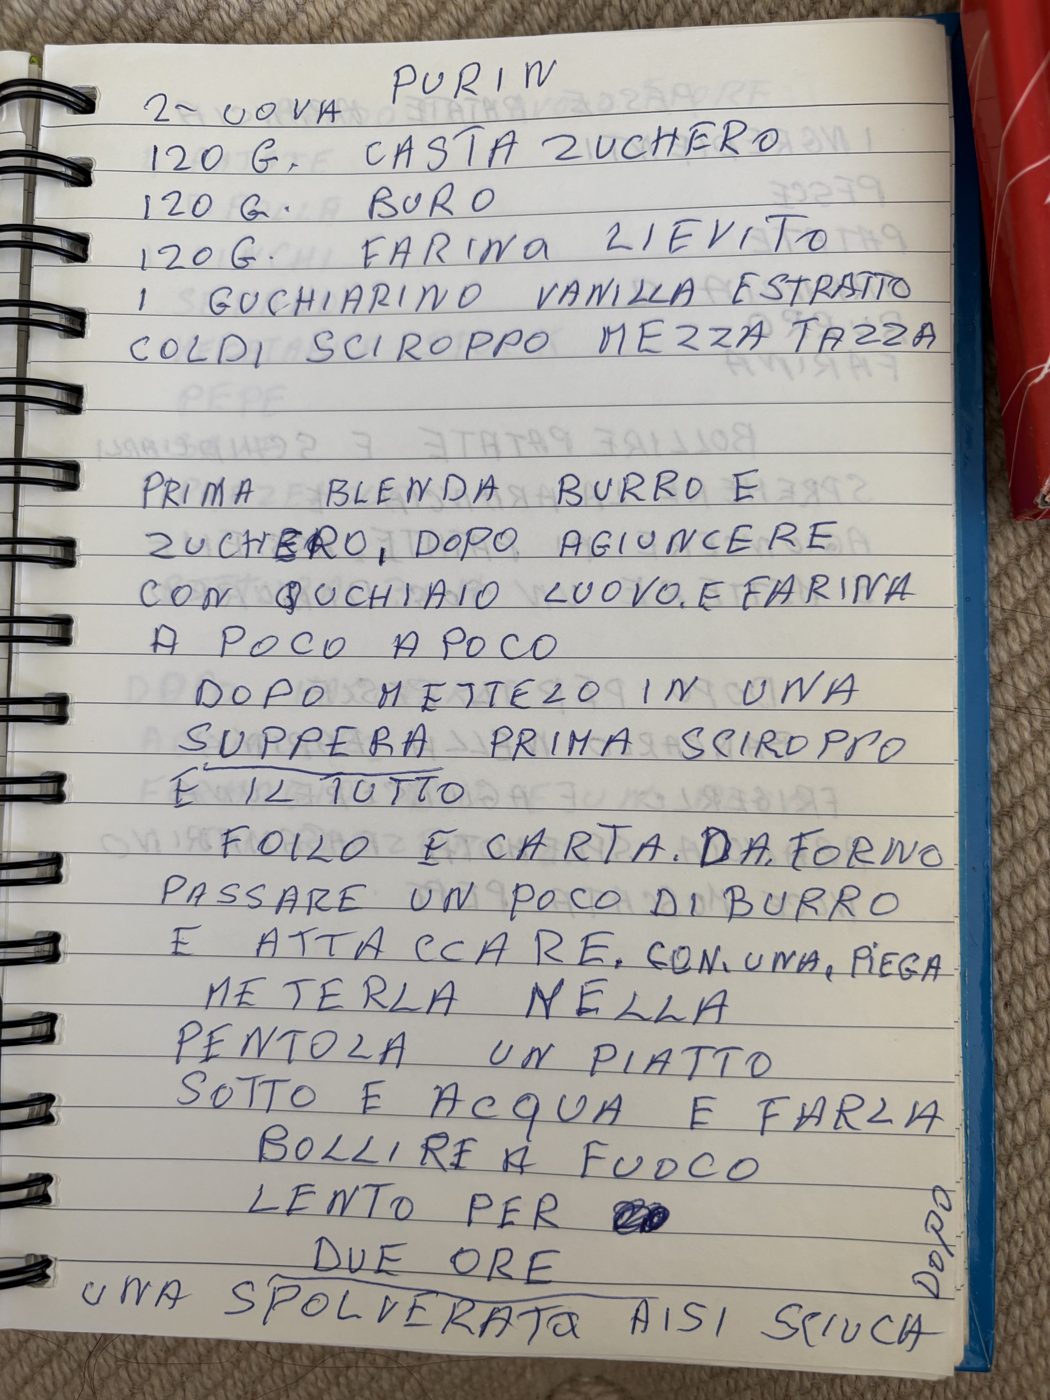 PURIN
2-UOVA
120 G. CASTA ZUCHERO
120 G. BURO
120 G. FARINa LIEVITO
1 GUCHIARINO VANILLA ESTRATTO
COLDI SCIROPPO MEZZA TAZZA
PRIMA BLENDA BURRO E
ZUCHERO, DOPO AGIUNCERE
CON QUCHIAIO LUOVO. E FARINA
A POCO A POCO
DOPO METTELO IN UNA
SUPPERA PRIMA SCIROPPO
E IL TUTTO
FOILO E CARTA. DA. FORNO
PASSARE UN POCO DI BURRO
E ATTACCARE. CON. UNA. PIEGA
METERLA NELLA
PENTOLA UN PIATTO
SOTTO E ACQUA E FARLA
BOLLIRE A FUOCO
LENTO PER
DUE ORE
DOPO
UNA SPOLVERATa AISI SCIUCA